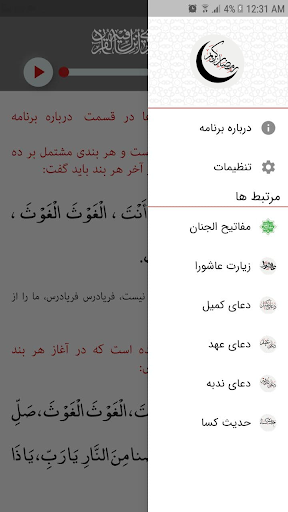 4% 12:31 AM
درباره برنامه
تنظیمات
مرتبط ها
مفاتیح الجنان
زیارت عاشورا
دعای کمیل
دعای عهد
دعای ندبه
حدیث کسا
ها در قسمت درباره برنامه
است و هر بندی مشتمل بر ده
آخر هر بند باید گفت:
أَنْتَ ، الْغَوْثَ الْغَوْثَ ،
نیست، فریادرس فریادرس، ما را از
ده است که در آغاز هر بند
تَ، الْغَوْثَ الْغَوْثَ، صَلِّ
صْنا مِنَ النَّارِ يَا رَبِّ، يَا ذَا